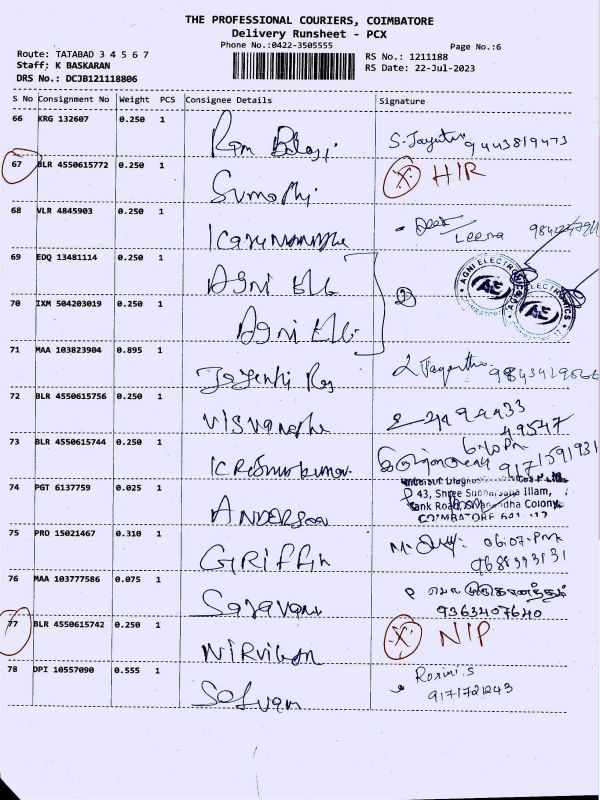 THE PROFESSIONAL COURIERS, COIMBATORE
Delivery Runsheet - PCX
Phone No.:0422-3505555 Page No.:6
Route: TATABAD 3 4 5 6 7 RS No.: 1211188
Staff: K BASKARAN RS Date: 22-Jul-2023
DRS No.: DCJB121118806
S No Consignment No Weight PCS Consignee Details Signature
66 KRG 132607 0.250 1
Ram Balaji 9443819473
67 BLR 4550615772 0.250 1
Sumathi (X) HIR
68 VLR 4845903 0.250 1
Leena
69 EDQ 13481114 0.250 1
Agni Ele AGNI ELECTRONICS COIMBATORE AE
70 IXM 504203019 0.250 1
Agni Ele 2 AGNI ELECTRONICS AE
71 MAA 103823904 0.895 1
72 BLR 4550615756 0.250 1
49547
73 BLR 4550615744 0.250 1
9171591931
74 PGT 6137759 0.025 1 43, Shree Illam,
ANDERSON COIMBATORE
75 PRO 15021467 0.310 1
GRIFFIN 06:07 PM
76 MAA 103777586 0.075 1
Saravana 9363407640
77 BLR 4550615742 0.250 1
(X) NIP
78 DPI 10557090 0.555 1 Rosini.S
Selvam 9171721243